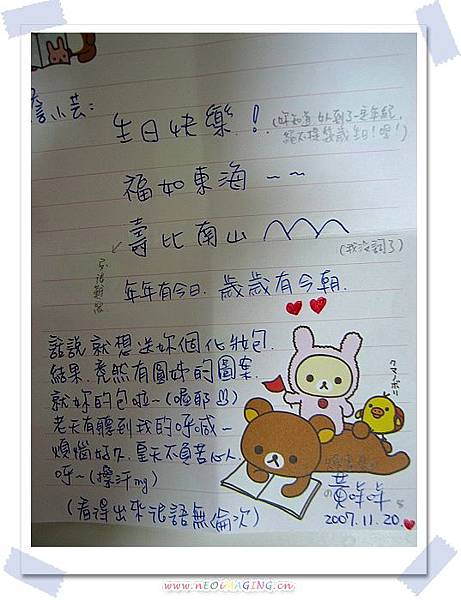 小芸:
生日快樂!(你知道女人到了一定年紀,
絕不提幾歲生日!喔!)
福如東海~~
壽比南山
(我沒詞了)
年年有今日.歲歲有今朝.
話說就想送妳個化妝包.
結果.竟然有圖姊的圖案.
就妳的包啦~(喔耶)
老天有聽到我的呼喊~
煩惱好久.皇天不負苦心人.
呼~(擦汗ing)
(看得出來混語無倫次)
黃咩咩
2007.11.20
www.nEOiMAGING.cn